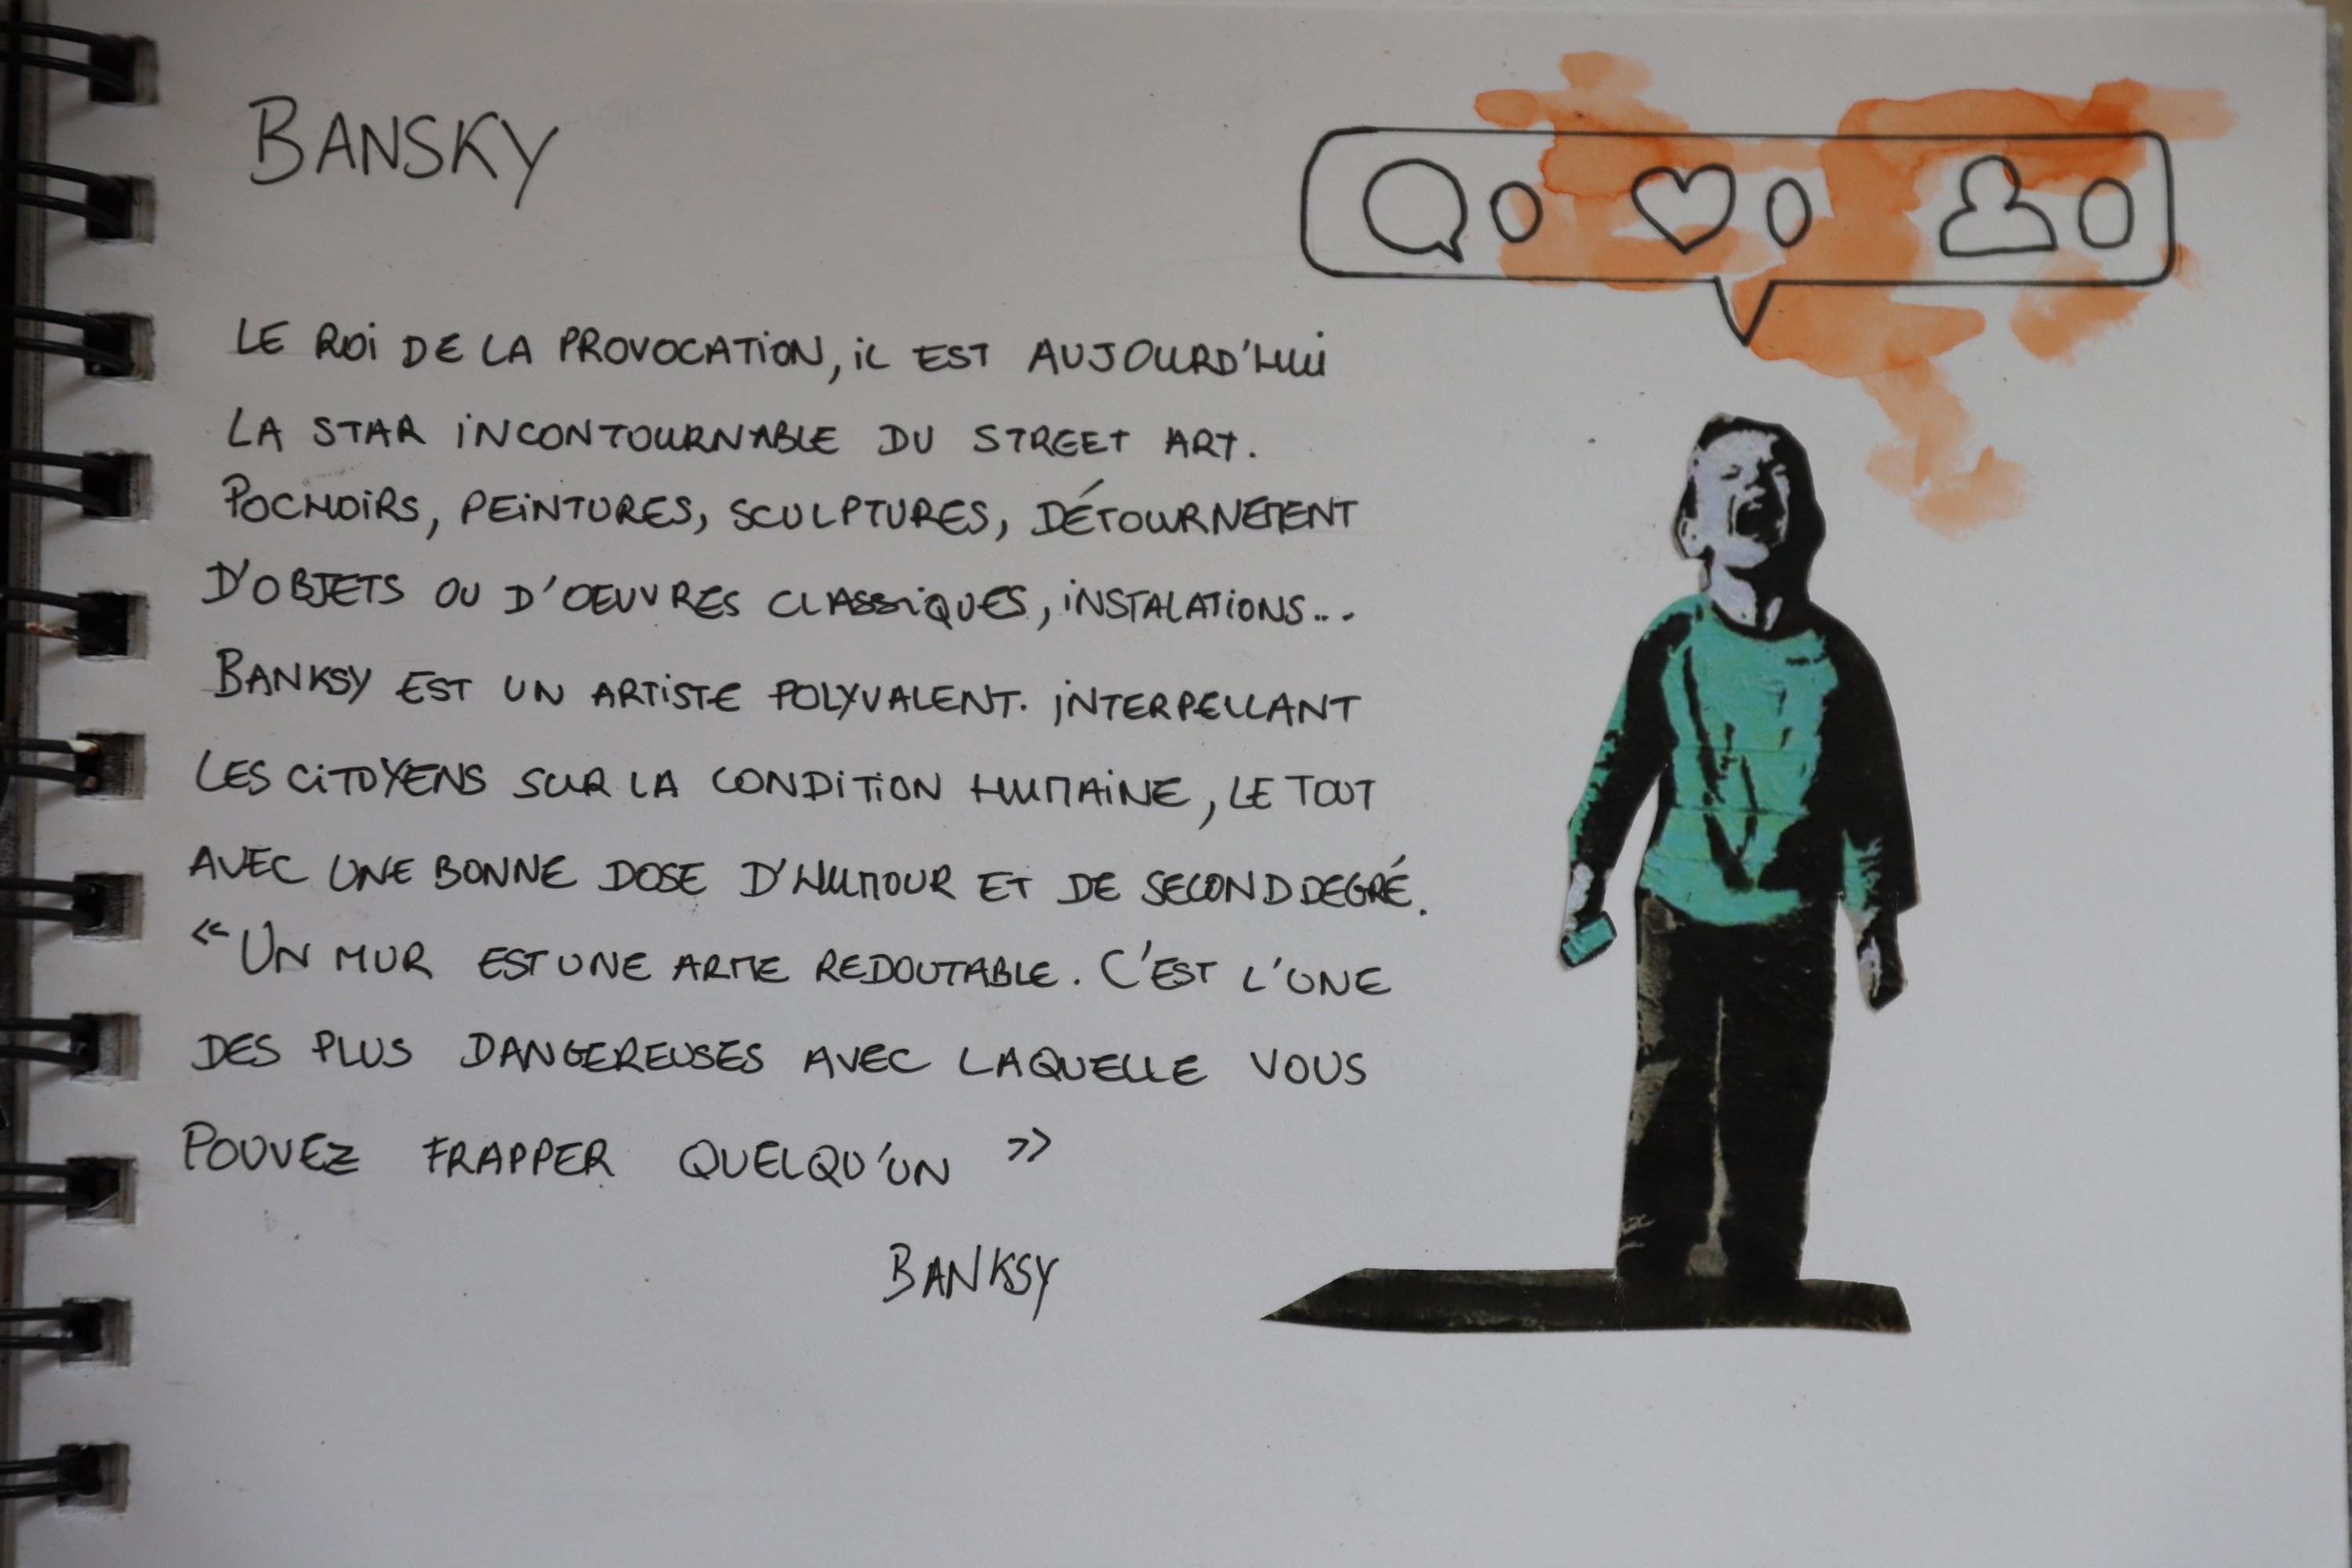 BANSKY
0 0 0
LE ROi DE LA PROVOCATiON, iL EST AUJOURD'HUi
LA STAR iNCONTOURNABLE DU STREET ART.
POCHOiRS, PEiNTURES, SCULPTURES, DÉTOURNEMENT
D'OBJETS OU D'OEUVRES CLASSiQUES, iNSTALATiONS...
BANKSY EST UN ARTiSTE POLYVALENT. iNTERPELLANT
LES CiTOYENS SUR LA CONDiTiON HUMAiNE, LE TOUT
AVEC UNE BONNE DOSE D'HUMOUR ET DE SECOND DEGRÉ.
« UN MUR EST UNE ARME REDOUTABLE. C'EST L'UNE
DES PLUS DANGEREUSES AVEC LAQUELLE VOUS
POUVEZ FRAPPER QUELQU'UN »
BANKSY